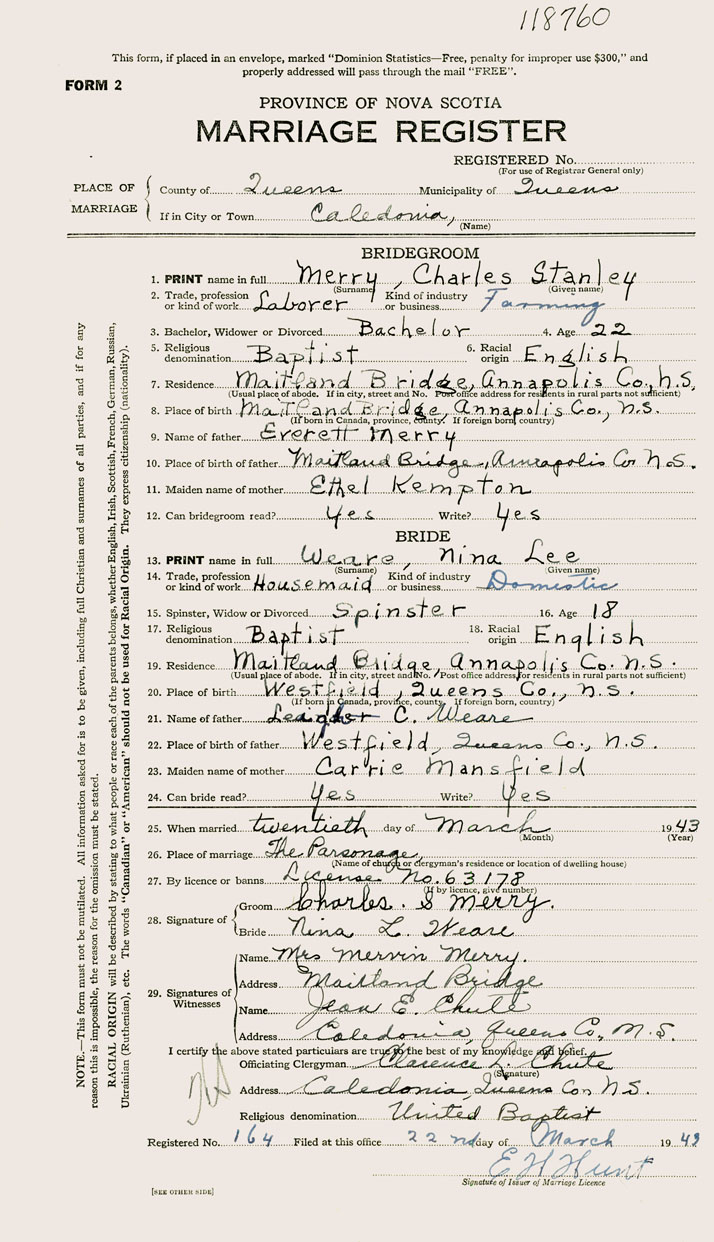 118760
This form, if placed in an envelope, marked "Dominion Statistics—Free, penalty for improper use $300," and
properly addressed will pass through the mail "FREE".
FORM 2
PROVINCE OF NOVA SCOTIA
MARRIAGE REGISTER
REGISTERED No.
(For use of Registrar General only)
PLACE OF MARRIAGE
County of Queens Municipality of Queens
If in City or Town Caledonia,
(Name)
BRIDEGROOM
1. PRINT name in full Merry, Charles Stanley
(Surname) (Given name)
2. Trade, profession or kind of work Laborer Kind of industry or business Farming
3. Bachelor, Widower or Divorced Bachelor 4. Age 22
5. Religious denomination Baptist 6. Racial origin English
7. Residence Maitland Bridge, Annapolis Co., N.S.
(Usual place of abode. If in city, street and No. Post office address for residents in rural parts not sufficient)
8. Place of birth Maitland Bridge, Annapolis Co., N.S.
(If born in Canada, province, county. If foreign born, country)
9. Name of father Everett Merry
10. Place of birth of father Maitland Bridge, Annapolis Co. N.S.
11. Maiden name of mother Ethel Kempton
12. Can bridegroom read? Yes Write? Yes
BRIDE
13. PRINT name in full Weare, Nina Lee
(Surname) (Given name)
14. Trade, profession or kind of work Housemaid Kind of industry or business Domestic
15. Spinster, Widow or Divorced Spinster 16. Age 18
17. Religious denomination Baptist 18. Racial origin English
19. Residence Maitland Bridge, Annapolis Co. N.S.
(Usual place of abode. If in city, street and No. Post office address for residents in rural parts not sufficient)
20. Place of birth Westfield, Queens Co., N.S.
(If born in Canada, province, county. If foreign born, country)
21. Name of father C. Weare
22. Place of birth of father Westfield, Queens Co., N.S.
23. Maiden name of mother Carrie Mansfield
24. Can bride read? Yes Write? Yes
25. When married twentieth day of March 1943
(Month) (Year)
26. Place of marriage The Parsonage,
(Name of church or clergyman's residence or location of dwelling house)
27. By licence or banns License No. 63178
(If by licence, give number)
28. Signature of
Groom Charles. S Merry.
Bride Nina L. Weare
29. Signatures of Witnesses
Name Mrs Mervin Merry.
Address Maitland Bridge
Name Jean E. Chute
Address Caledonia, Queens Co, N.S.
I certify the above stated particulars are true to the best of my knowledge and belief.
Officiating Clergyman Clarence L. Chute
(Signature)
Address Caledonia, Queens Co. N.S.
Religious denomination United Baptist
Registered No. 164 Filed at this office 22nd day of March 1943
E H Hunt
Signature of Issuer of Marriage Licence
[SEE OTHER SIDE]
NOTE.—This form must not be mutilated. All information asked for is to be given, including full Christian and surnames of all parties, and if for any
reason this is impossible, the reason for the omission must be stated.
RACIAL ORIGIN will be described by stating to what people or race each of the parents belongs, whether English, Irish, Scottish, French, German, Russian,
Ukrainian (Ruthenian), etc. The words "Canadian" or "American" should not be used for Racial Origin. They express citizenship (nationality).